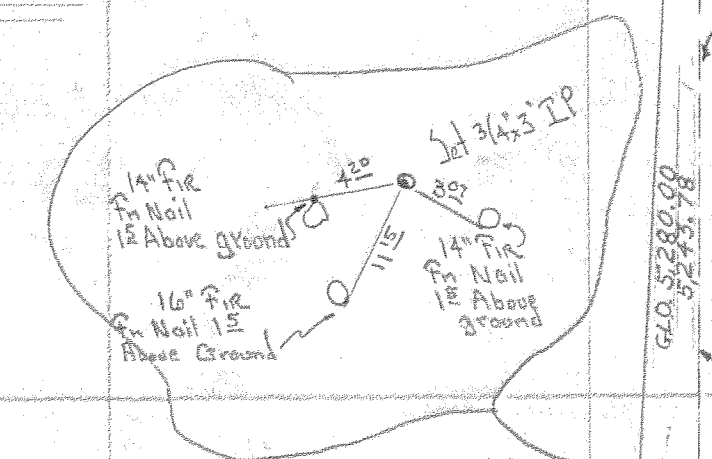 Set 3/4"x3" IP
4 20
3 07
11 15
14" FIR
Fn Nail
1 5 Above ground
14" FIR
Fn Nail
1 5 Above
ground
16" FIR
Fn Nail 1 5
Above Ground
GLO. 5,280.00
5,245.78